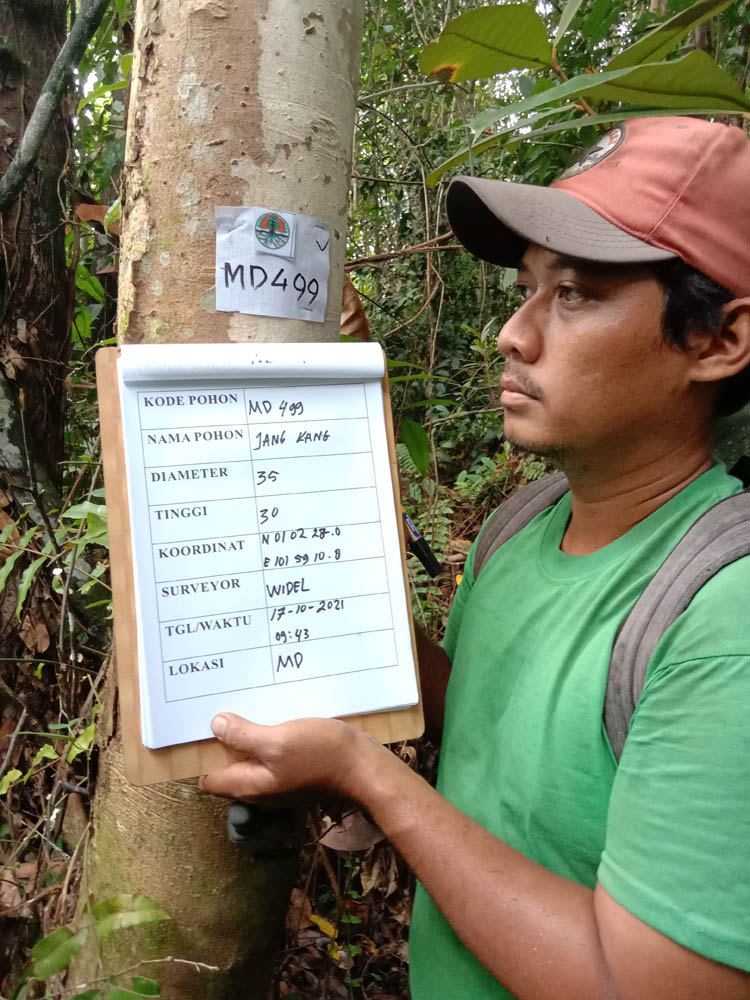 MD499
KODE POHON MD 499
NAMA POHON JANG KANG
DIAMETER 35
TINGGI 30
KOORDINAT N 01 02 28.0
E 101 59 10.8
SURVEYOR WIDEL
TGL/WAKTU 17-10-2021
09:43
LOKASI MD